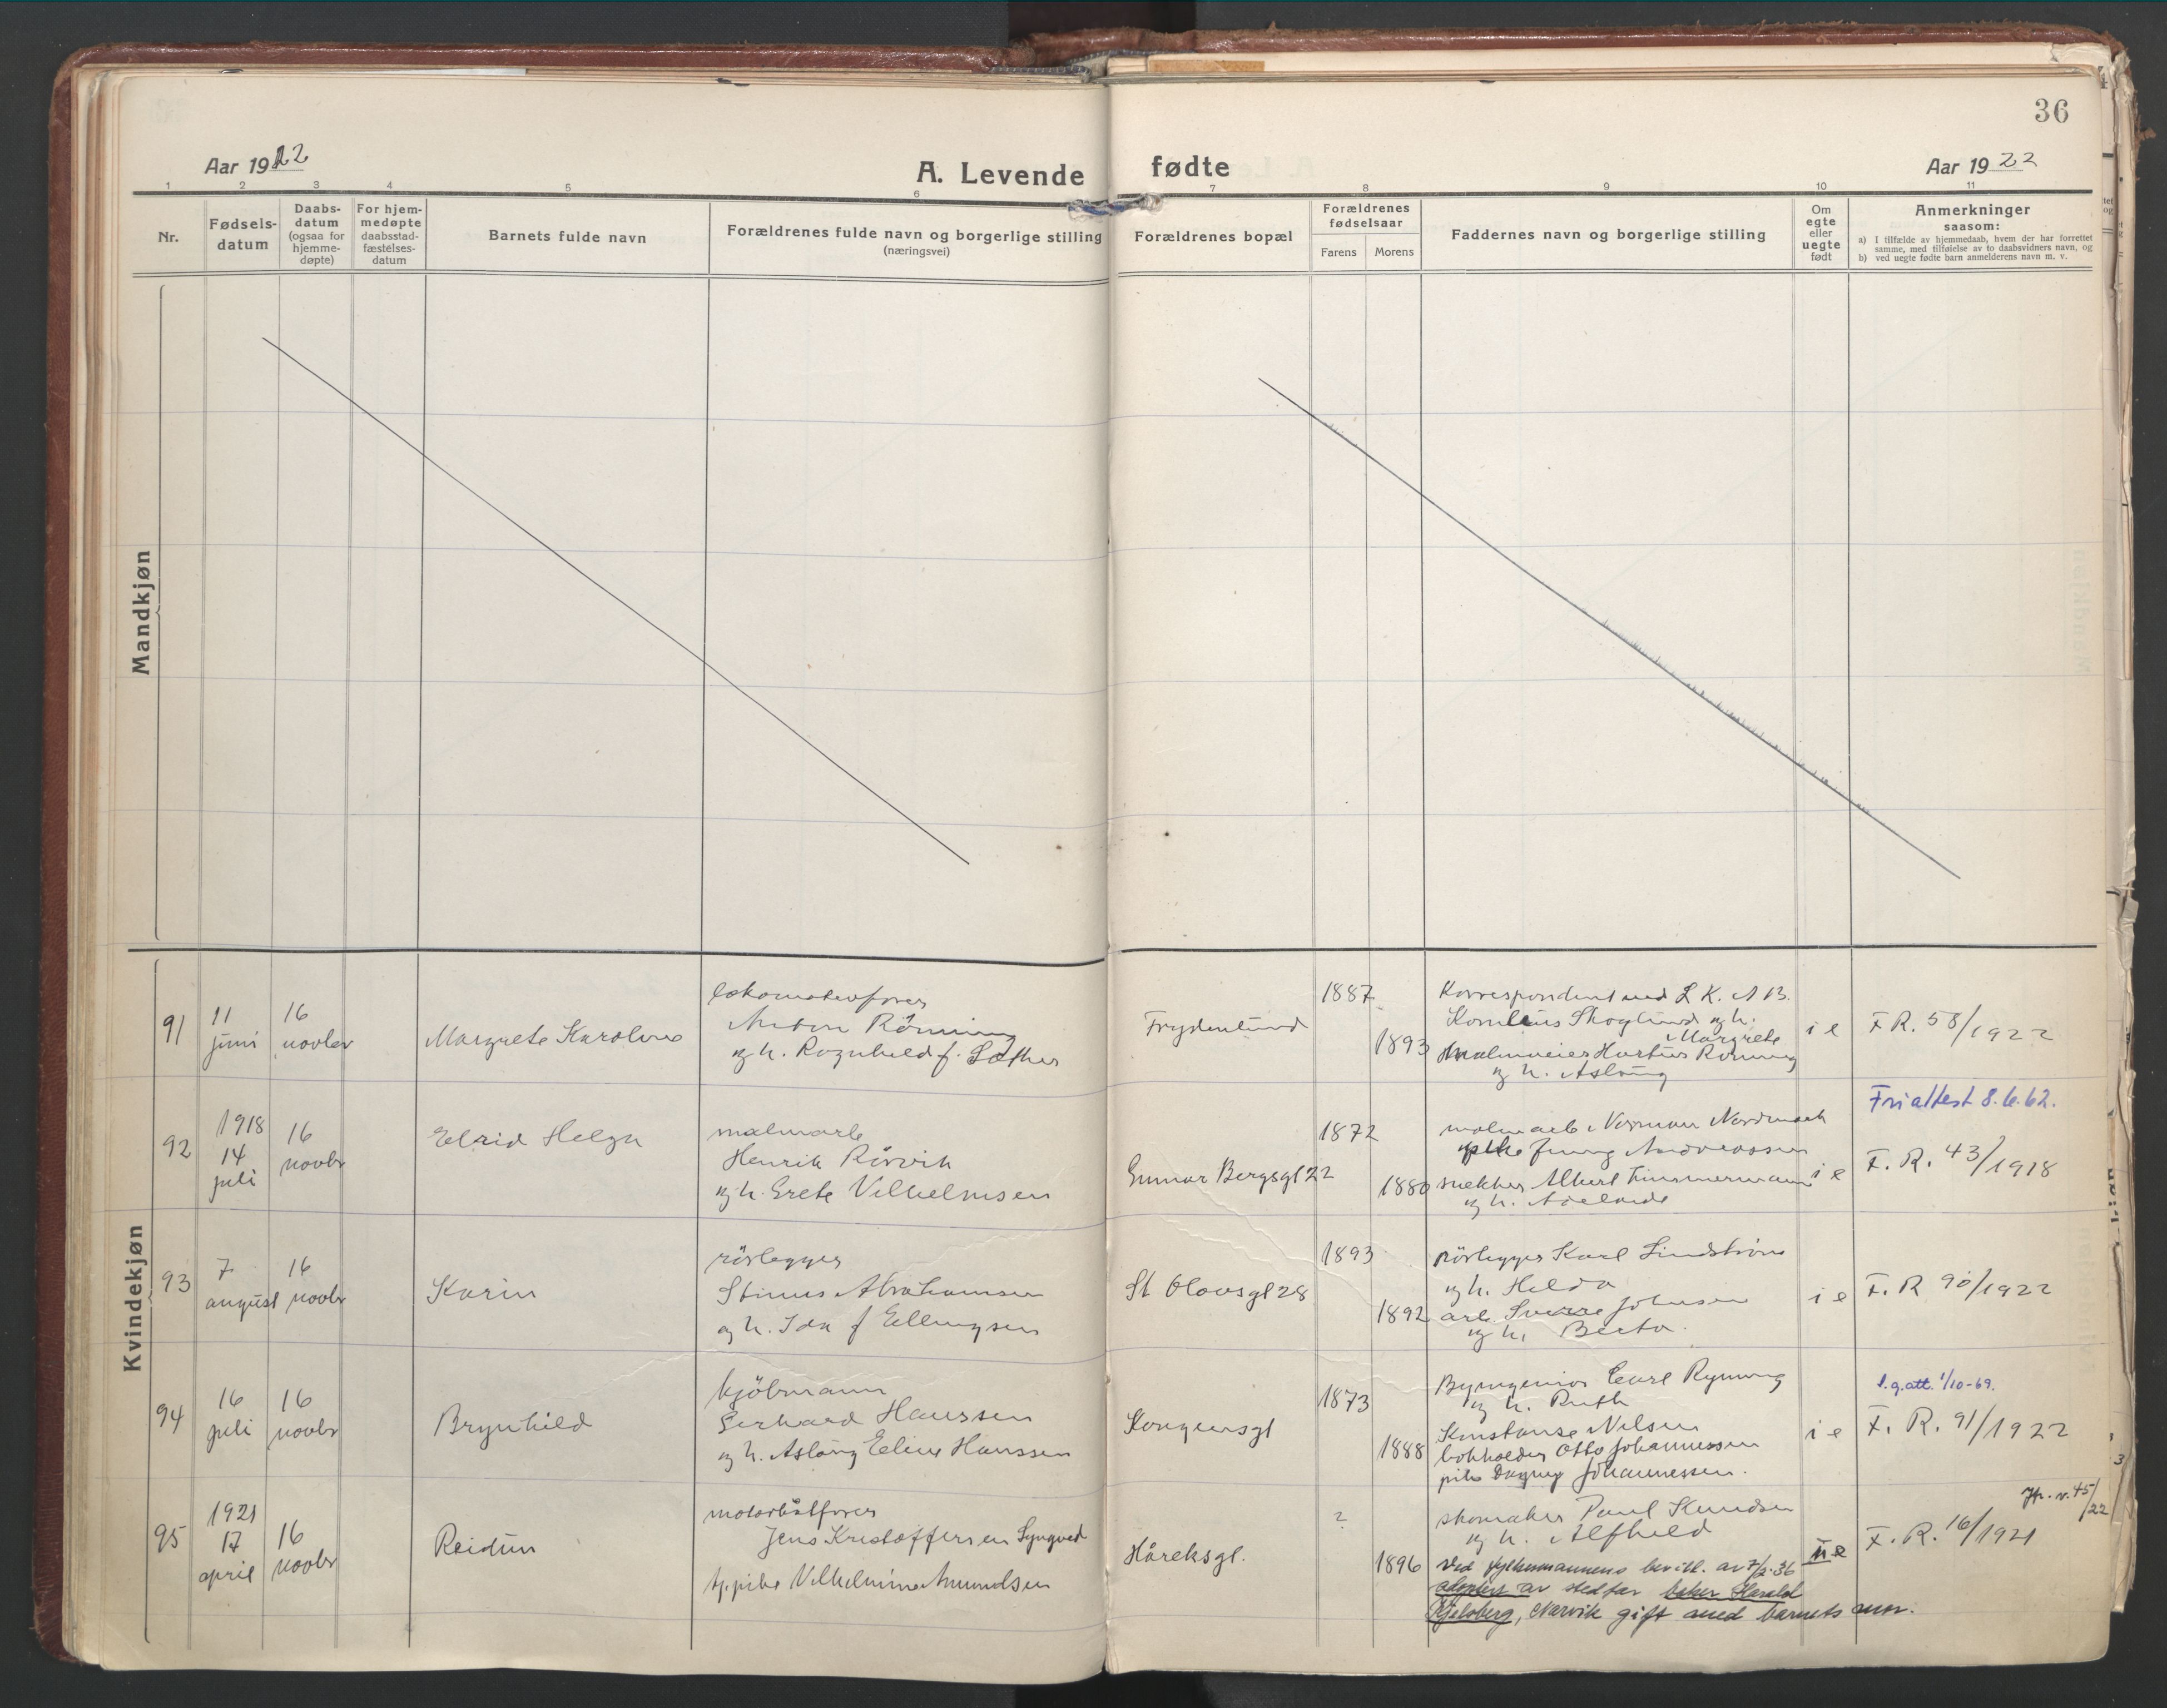 36
Aar 1922
A. Levende fødte
Aar 1922
1 2 3 4 5 6 7 8 9 10 11
Nr.
Fødsels-
datum
Daabs-
datum
(ogsaa for
hjemme-
døpte)
For hjem-
medøpte
daabsstad-
fæstelses-
datum
Barnets fulde navn
Forældrenes fulde navn og borgerlige stilling
(næringsvei)
Forældrenes bopæl
Forældrenes
fødselsaar
Farens Morens
Faddernes navn og borgerlige stilling
Om
egte
eller
uegte
født
Anmerkninger
saasom:
a) I tilfælde av hjemmedaab, hvem der har forrettet
samme, med tilføielse av to daabsvidners navn, og
b) ved uegte fødte barn anmelderens navn m. v.
Mandkjøn
Kvindekjøn
91
11
juni
16
novbr
Margrete Karoline
lokomotivfører
Anton Rönning
og h. Ragnhild f. Sæther
Frydenlund
1887
1893
Korrespondent ved L.K.A.B.
Kornelius Skoglund og h.
Margrete
malmveier Hartvig Rönning
og h. Aslaug
i e
F R. 58/1922
92
1918
14
juli
16
novbr
Elrid Helga
malmarb
Henrik Rörvik
og h. Grete Vilhelmsen
Gunnar Bergsgt 22
1872
1880
malmarb Norman Nordmark
pike Jenny Andreassen
snekker Albert Timmermann
og h. Adelaide
i e
Friattest 8.6.62.
F. R. 43/1918
93
7
august
16
novbr
Karin
rörlegger
Stinus Abrahamsen
og h. Ida f Ellingsen
St Olavsgt 28
1893
1892
rörlegger Karl Lindström
og h. Hilda
arb. Sverre Johnsen
og h. Berta.
i e
F. R 90/1922
94
16
juli
16
novbr
Brynhild
kjöbmann
Gerhard Hanssen
og h. Aslaug Eline Hanssen
Kongensgt
1873
1888
Byingeniör Carl Ryning
og h. Ruth
Konstanse Nilsen
bokholder Otto Johannessen
pike Dagny Johannessen.
i e
l.g.att. 1/10-69.
F. R. 91/1922
95
1921
17
april
16
novbr
Reidun
motorbåtförer
Jens Kristoffersen Syngved
pike Vilhelmine Amundsen
Håreksgt.
?
1896
skomaker Paul Knudsen
og h. Alfhild
Ved fylkesmannens bevill. av 7/2-36
adoptert av stedfar baker Harald
Kjelsberg, Narvik gift med barnets mor.
u e
Jfr. nr. 45/22
F. R. 16/1921